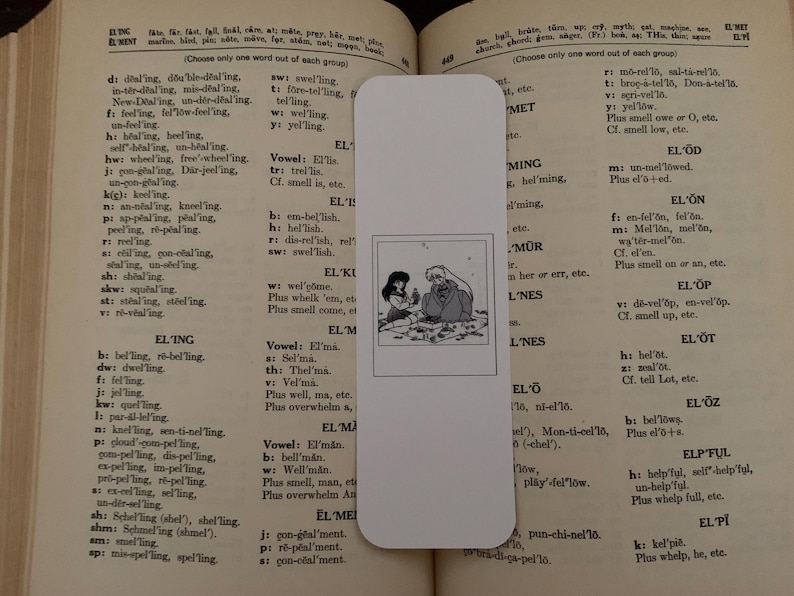 EL'ING
EL'MENT
fāte, fär, fȧst, fạll, finăl, cāre, at; mēte, prẹy, hẽr, met; pīne,
marïne, bĭrd, pin; nōte, möve, fọr, atŏm, not; mọọn, book;
(Choose only one word out of each group)
d: dēal'ing, dôu'ble-dēal'ing,
in-tẽr-dēal'ing, mis-dēal'ing,
New-Dēal'ing, un-dẽr-dēal'ing.
f: feel'ing, fel"lōw-feel'ing,
un-feel'ing.
h: hēal'ing, heel'ing,
self"-hēal'ing, un-hēal'ing.
hw: wheel'ing, free'-wheel'ing.
j: çon-ġēal'ing, Där-jeel'ing,
un-çon-ġēal'ing.
k(ç): keel'ing.
n: an-nēal'ing, kneel'ing.
p: ap-pēal'ing, pēal'ing,
peel'ing, rē-pēal'ing.
r: reel'ing.
s: cēil'ing, çon-cēal'ing,
sēal'ing, un-sēel'ing.
sh: shēal'ing.
skw: squēal'ing.
st: stēal'ing, stēel'ing.
v: rē-vēal'ing.
EL'ING
b: bel'ling, rē-bel'ling.
dw: dwel'ling.
f: fel'ling.
j: jel'ling.
kw: quel'ling.
l: par-ăl-lel'ing.
n: knel'ling, sen-ti-nel'ling.
p: çloud'-çom-pel'ling,
çom-pel'ling, dis-pel'ling,
ex-pel'ling, im-pel'ling,
prō-pel'ling, rē-pel'ling.
s: ex-cel'ling, sel'ling,
un-dẽr-sel'ling.
sh: Sçhel'ling (shel'), shel'ling.
shm: Sçhmel'ing (shmel').
sm: smel'ling.
sp: mis-spel'ling, spel'ling.
sw: swel'ling.
t: fōre-tel'ling,
tel'ling.
w: wel'ling.
y: yel'ling.
Vowel: El'lis.
tr: trel'lis.
Cf. smell is, etc.
b: em-bel'lish.
h: hel'lish.
r: dis-rel'ish,
sw: swel'lish.
w: wel'çŏme.
Plus whelk 'em, etc.
Plus smell come,
Vowel: El'mȧ.
s: Sel'mȧ.
th: Thel'mȧ.
v: Vel'mȧ.
Plus well, ma, etc.
Plus overwhelm a,
Vowel: El'măn.
b: bell'măn.
w: Well'măn.
Plus smell, man,
Plus overwhelm
j: çon-ġēal'ment.
p: rē-pēal'ment.
s: çon-cēal'ment.
449
ūse, bụll, brûte, tûrn, up; crȳ, myth; çat, maçhine, ace,
church, çhord; ġem, aṅger, (Fr.) boṅ, aṣ; THis, thin; aẓure
EL'MET
EL'PĬ
(Choose only one word out of each group)
or err, etc.
r: mō-rel'lō, sal-tȧ-rel'lō.
t: broç-ȧ-tel'lō, Don-ȧ-tel'lō.
v: sçri-vel'lō.
y: yel'lōw.
Plus smell owe or O, etc.
Cf. smell low, etc.
EL'ŎD
m: un-mel'lōwed.
Plus el'ō+ed.
EL'ŎN
f: en-fel'ŏn, fel'ŏn.
m: Mel'lŏn, mel'ŏn,
wạ'tẽr-mel"ŏn.
Cf. el'en.
Plus smell on or an, etc.
EL'ŎP
v: dē-vel'ŏp, en-vel'ŏp.
Cf. smell up, etc.
EL'ŎT
h: hel'ŏt.
z: zeal'ŏt.
Cf. tell Lot, etc.
EL'ŌZ
b: bel'lōwṣ.
Plus el'ō+s.
ELP'FỤL
h: help'fụl, self"-help'fụl,
un-help'fụl.
Plus whelp full, etc.
EL'PĬ
k: kel'piē.
Plus whelp, he, etc.